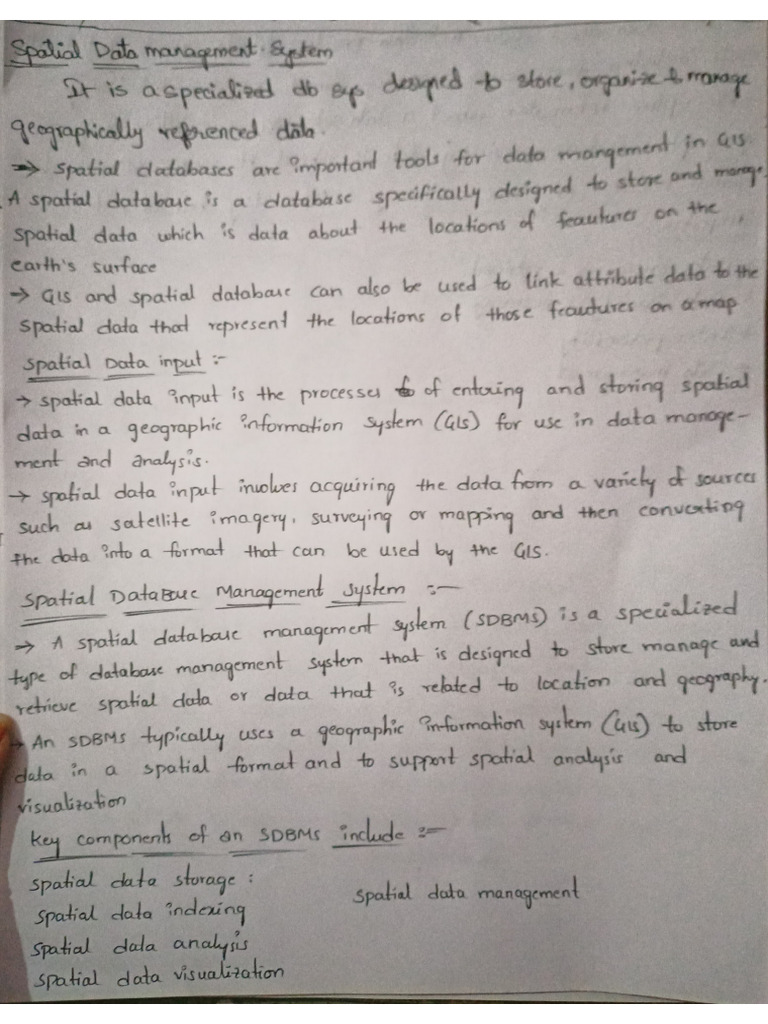 Spatial Data management System
It is a specialized db sys designed to store, organize & manage
geographically referenced data.
→ spatial databases are important tools for data mangement in GIS
A spatial database is a database specifically designed to store and manage
spatial data which is data about the locations of feautures on the
earth's surface
→ GIS and spatial database can also be used to link attribute data to the
spatial data that represent the locations of those feautures on a map
spatial Data input :-
→ spatial data input is the processes of entering and storing spatial
data in a geographic information system (GIS) for use in data manage-
ment and analysis.
→ spatial data input involves acquiring the data from a variety of sources
such as satellite imagery, surveying or mapping and then converting
the data into a format that can be used by the GIS.
Spatial DataBase Management System :-
→ A spatial database management system (SDBMS) is a specialized
type of database management system that is designed to store manage and
retrieve spatial data or data that is related to location and geography.
→ An SDBMS typically uses a geographic information system (GIS) to store
data in a spatial format and to support spatial analysis and
visualization
key components of an SDBMS include :-
spatial data storage :
spatial data management
spatial data indexing
spatial data analysis
spatial data visualization